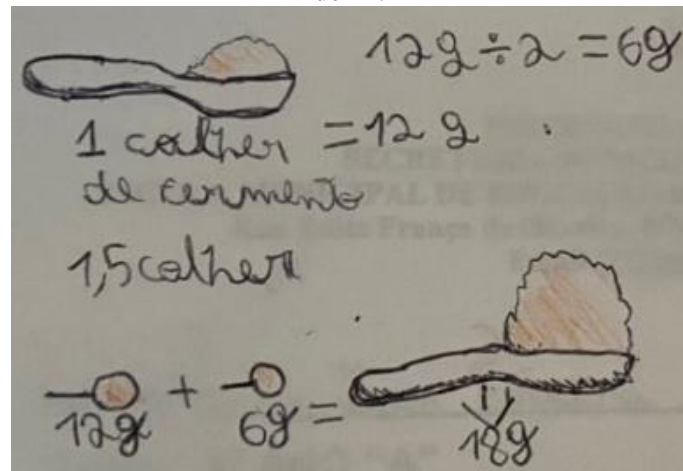 12g÷2=6g
1 colher = 12 g
de fermento
1,5 colher
12g + 6g =
18g